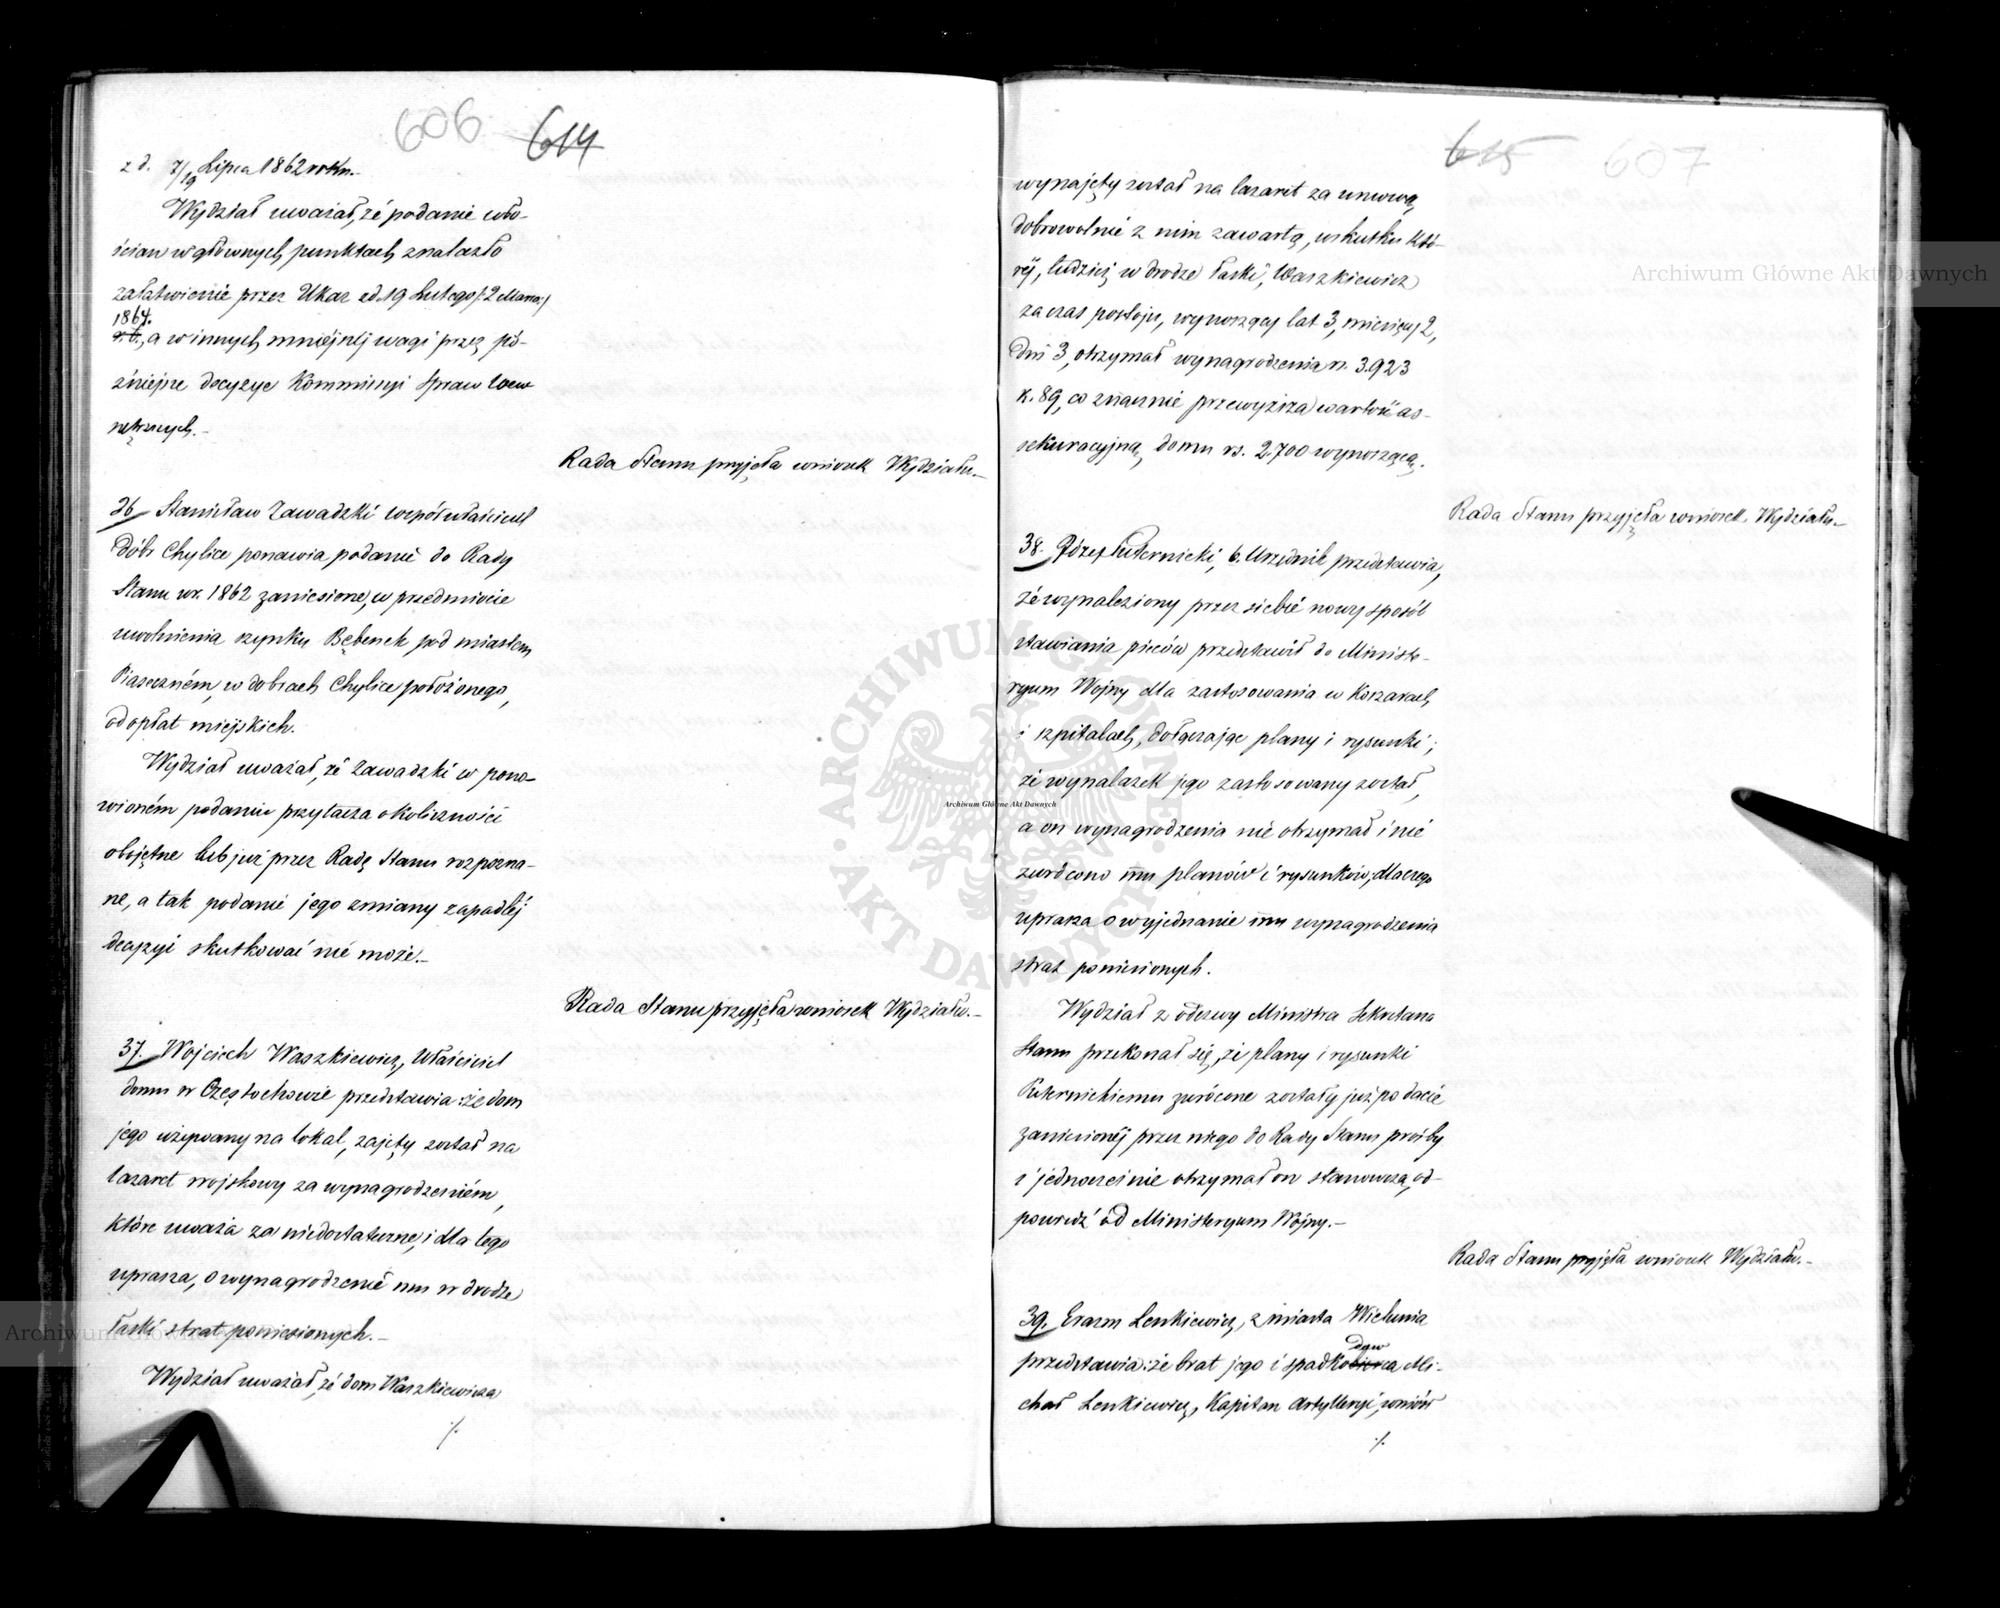 606 614
z d. 7/19 Lipca 1862 roku.
Wydział uważał, że podanie wło-
ścian w głównych punktach znalazło
załatwienie przez Ukaz z d. 19 Lutego /: 2 Marca :/
1864.
r. b., a w innych mniejszej wagi przez pó-
źniejsze decyzye Kommissyi Spraw Wew-
nętrznych.-
Rada Stanu przyjęła wniosek Wydziału.-
36 Stanisław Zawadzki współwłaściciel
dóbr Chylice ponawia podanie do Rady
Stanu w r. 1862 zaniesione, w przedmiocie
uwolnienia szynku Bębenek pod miastem
Piasecznem, w dobrach Chylice położonego,
od opłat miejskich.
Wydział uważał, że Zawadzki w pono-
wioném podaniu przytacza okoliczności
obojętne lub już przez Radę Stanu rozpozna-
ne, a tak podanie jego zmiany zapadłéj
decyzyi skutkować nie może.-
Rada Stanu przyjęła wniosek Wydziału.-
37. Wojciech Waszkiewicz, Właściciel
domu w Częstochowie przedstawia: że dom
jego używany na lokal, zajęty został na
lazaret wojskowy za wynagrodzeniém,
które uważa za niedostateczne, i dla tego
uprasza, o wynagrodzenie mu w drodze
łaski strat poniesionych.-
Wydział uważał, że dom Waszkiewicza
./.
615 607
wynajęty został na lazaret za umową
dobrowolnie z nim zawartą, w skutku któ-
réj, tudzież w drodze łaski, Waszkiewicz
za czas postoju, wynoszący lat 3, miesięcy 2,
dni 3, otrzymał wynagrodzenia rs. 3.923
k. 89, co znacznie przewyższa wartość as-
sekuracyjną domu rs. 2.700 wynoszącą.
Rada Stanu przyjęła wniosek Wydziału.-
38. Józef Puternicki, b. Urzędnik przedstawia,
że wynaleziony przez siebie nowy sposób
stawiania pieców przedstawił do Ministe-
ryum Wojny dla zastosowania w Koszarach
i szpitalach, dołączając plany i rysunki;
że wynalazek jego zastosowany został,
a on wynagrodzenia nie otrzymał i nie
zwrócono mu planów i rysunków; dlaczego
uprasza o wyjednanie mu wynagrodzenia
strat poniesionych.
Wydział z odezwy Ministra Sekretarza
Stanu przekonał się, że plany i rysunki
Puternickiemu zwrócone zostały już po dacie
zaniesionéj przez niego do Rady Stanu prośby
i jednocześnie otrzymał on stanowczą od-
powiedź od Ministeryum Wojny.-
Rada Stanu przyjęła wniosek Wydziału.-
39. Erazm Lenkiewicz, z miasta Wielunia
przedstawia: że brat jego i spadkobierca Mi-
chał Lenkiewicz, Kapitan Artylleryi, wniósł
./.
Archiwum Główne Akt Dawnych
Archiwum Główne Akt Dawnych
ARCHIWUM GŁÓWNE AKT DAWNYCH